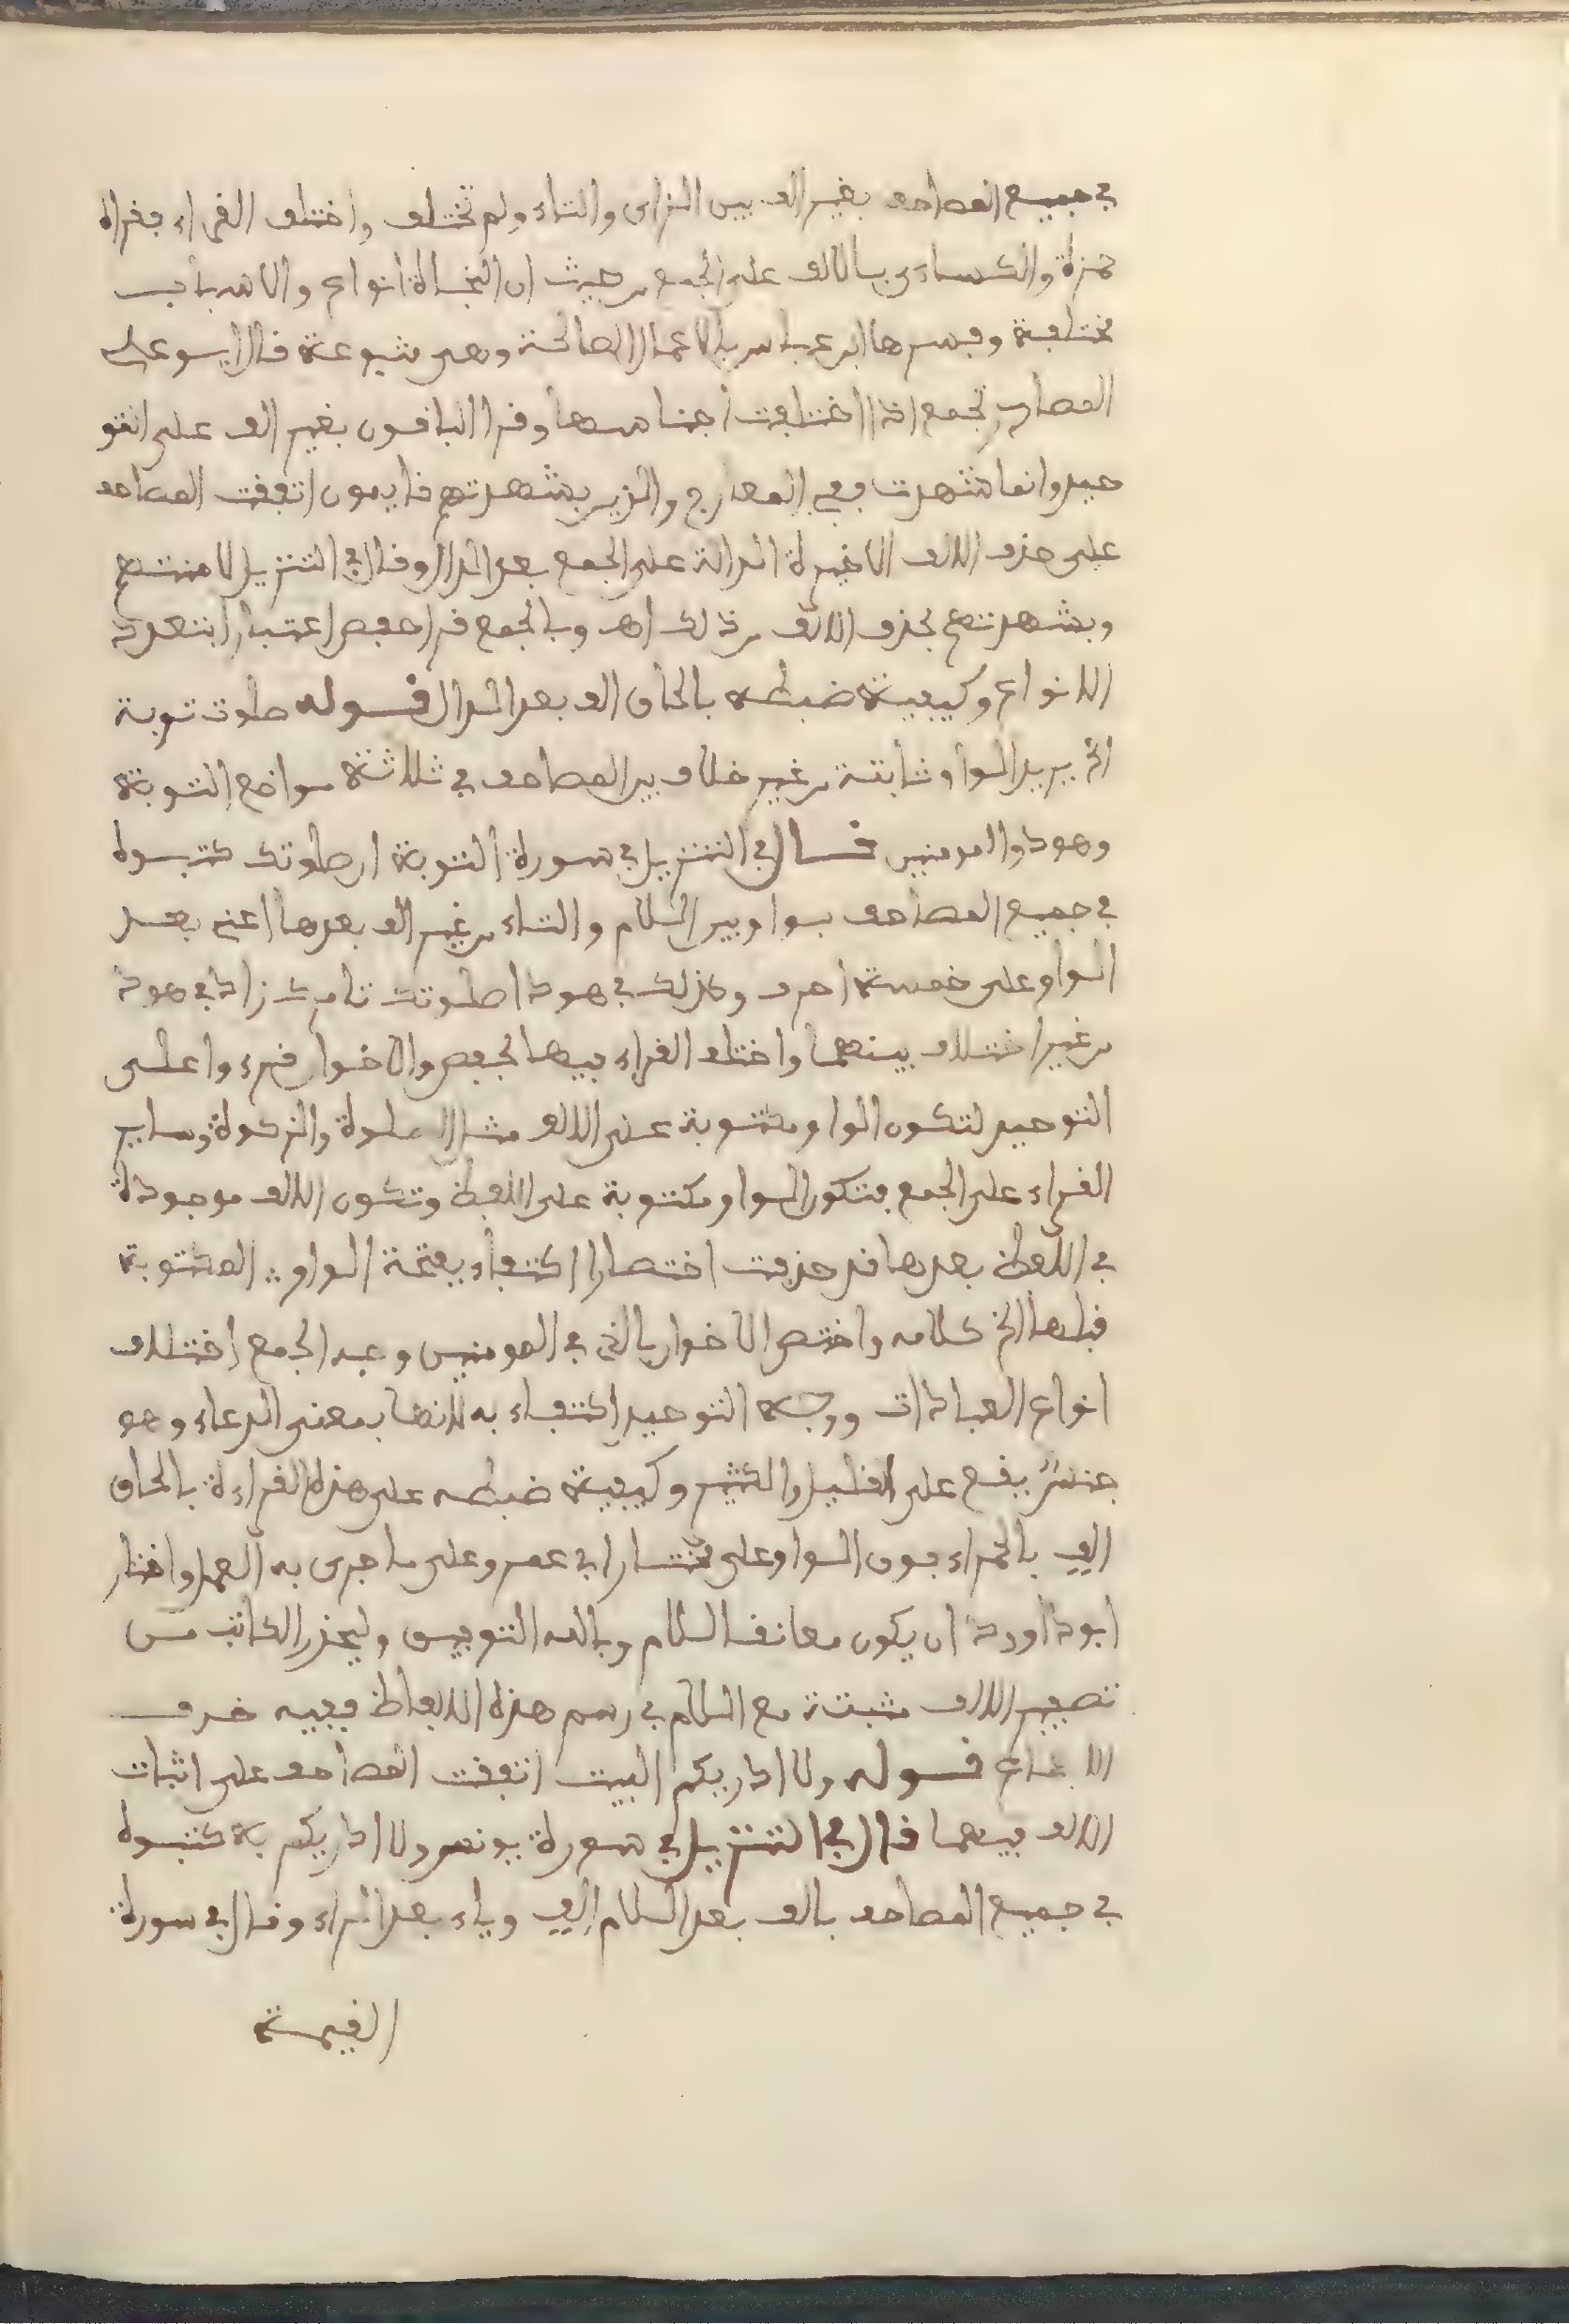 في جميع المصاحف بغير الف بين الزاي والتاء ولم تختلف واختلف القراء فقراه
حمزة والكساءي بالالف على الجمع من حيث ان النجاة انواع والاسباب
مختلفة وفسرها ابن عباس بالاعمال الصالحة وهي متنوعة قال ابو علي
المصادر تجمع اذا اختلفت اجناسها وقرا الباقون بغير الف على التو
حيد وانما شهدت ففي المعارج والذين بشهدتهم قايمون اتفقت المصاحف
على حذف الالف الاخيرة الدالة على الجمع بعد الدال وقال في التنزيل لامنتهم
وبشهدتهم بحذف الالف من ذلك اهـ وبالجمع قرا حفص اعتبارا بتعدد
الانواع وكيفية ضبطه بالحاق الف بعد الدال قوله صلوت توبة
الخ يريد الواو ثابتة من غير خلاف بين المصاحف في ثلاثة مواضع التوبة
وهود والمومنين قال في التنزيل في سورة التوبة ان صلوتك كتبوه
في جميع المصاحف بواو بين اللام والتاء من غير الف بعدها اعني بعد
الواو على خمسة احرف وكذلك في هود اصلوتك تامرك زاد في هود
من غير اختلاف بينهما واختلف القراء فيهما فحفص والاخوان قرءوا على
التوحيد لتكون الواو مكتوبة على الالف مثل الصلوة والزكوة وساير
القراء على الجمع فتكون الواو مكتوبة على اللفظ وتكون الالف موجودة
في اللفظ بعدها قد حذفت اختصارا اكتفاء بفتحة الواو المكتوبة
قبلها الخ كلامه واختص الاخوان بالذي في المومنين وجه الجمع اختلاف
انواع العبادات ووجه التوحيد اكتفاء به لانها بمعنى الدعاء وهو
جنس يقع على القليل والكثير وكيفية ضبطه على هذه القراءة بالحاق
الف بالحمراء فوق الواو على مختار ابي عمرو على ما جرى به العمل واختار
ابو داوود ان يكون معانقا للام وبالله التوفيق وليحذر الكاتب من
تصيير الالف مثبتة مع اللام في رسم هذه الالفاظ ففيه خرق
الاجماع قوله ولا ادريكم البيت اتفقت المصاحف على اثبات
الالف فيهما قال في التنزيل في سورة يونس ولا ادريكم به كتبوه
في جميع المصاحف بالف بعد اللام الف وياء بعد الراء وقال في سورة
القيمة